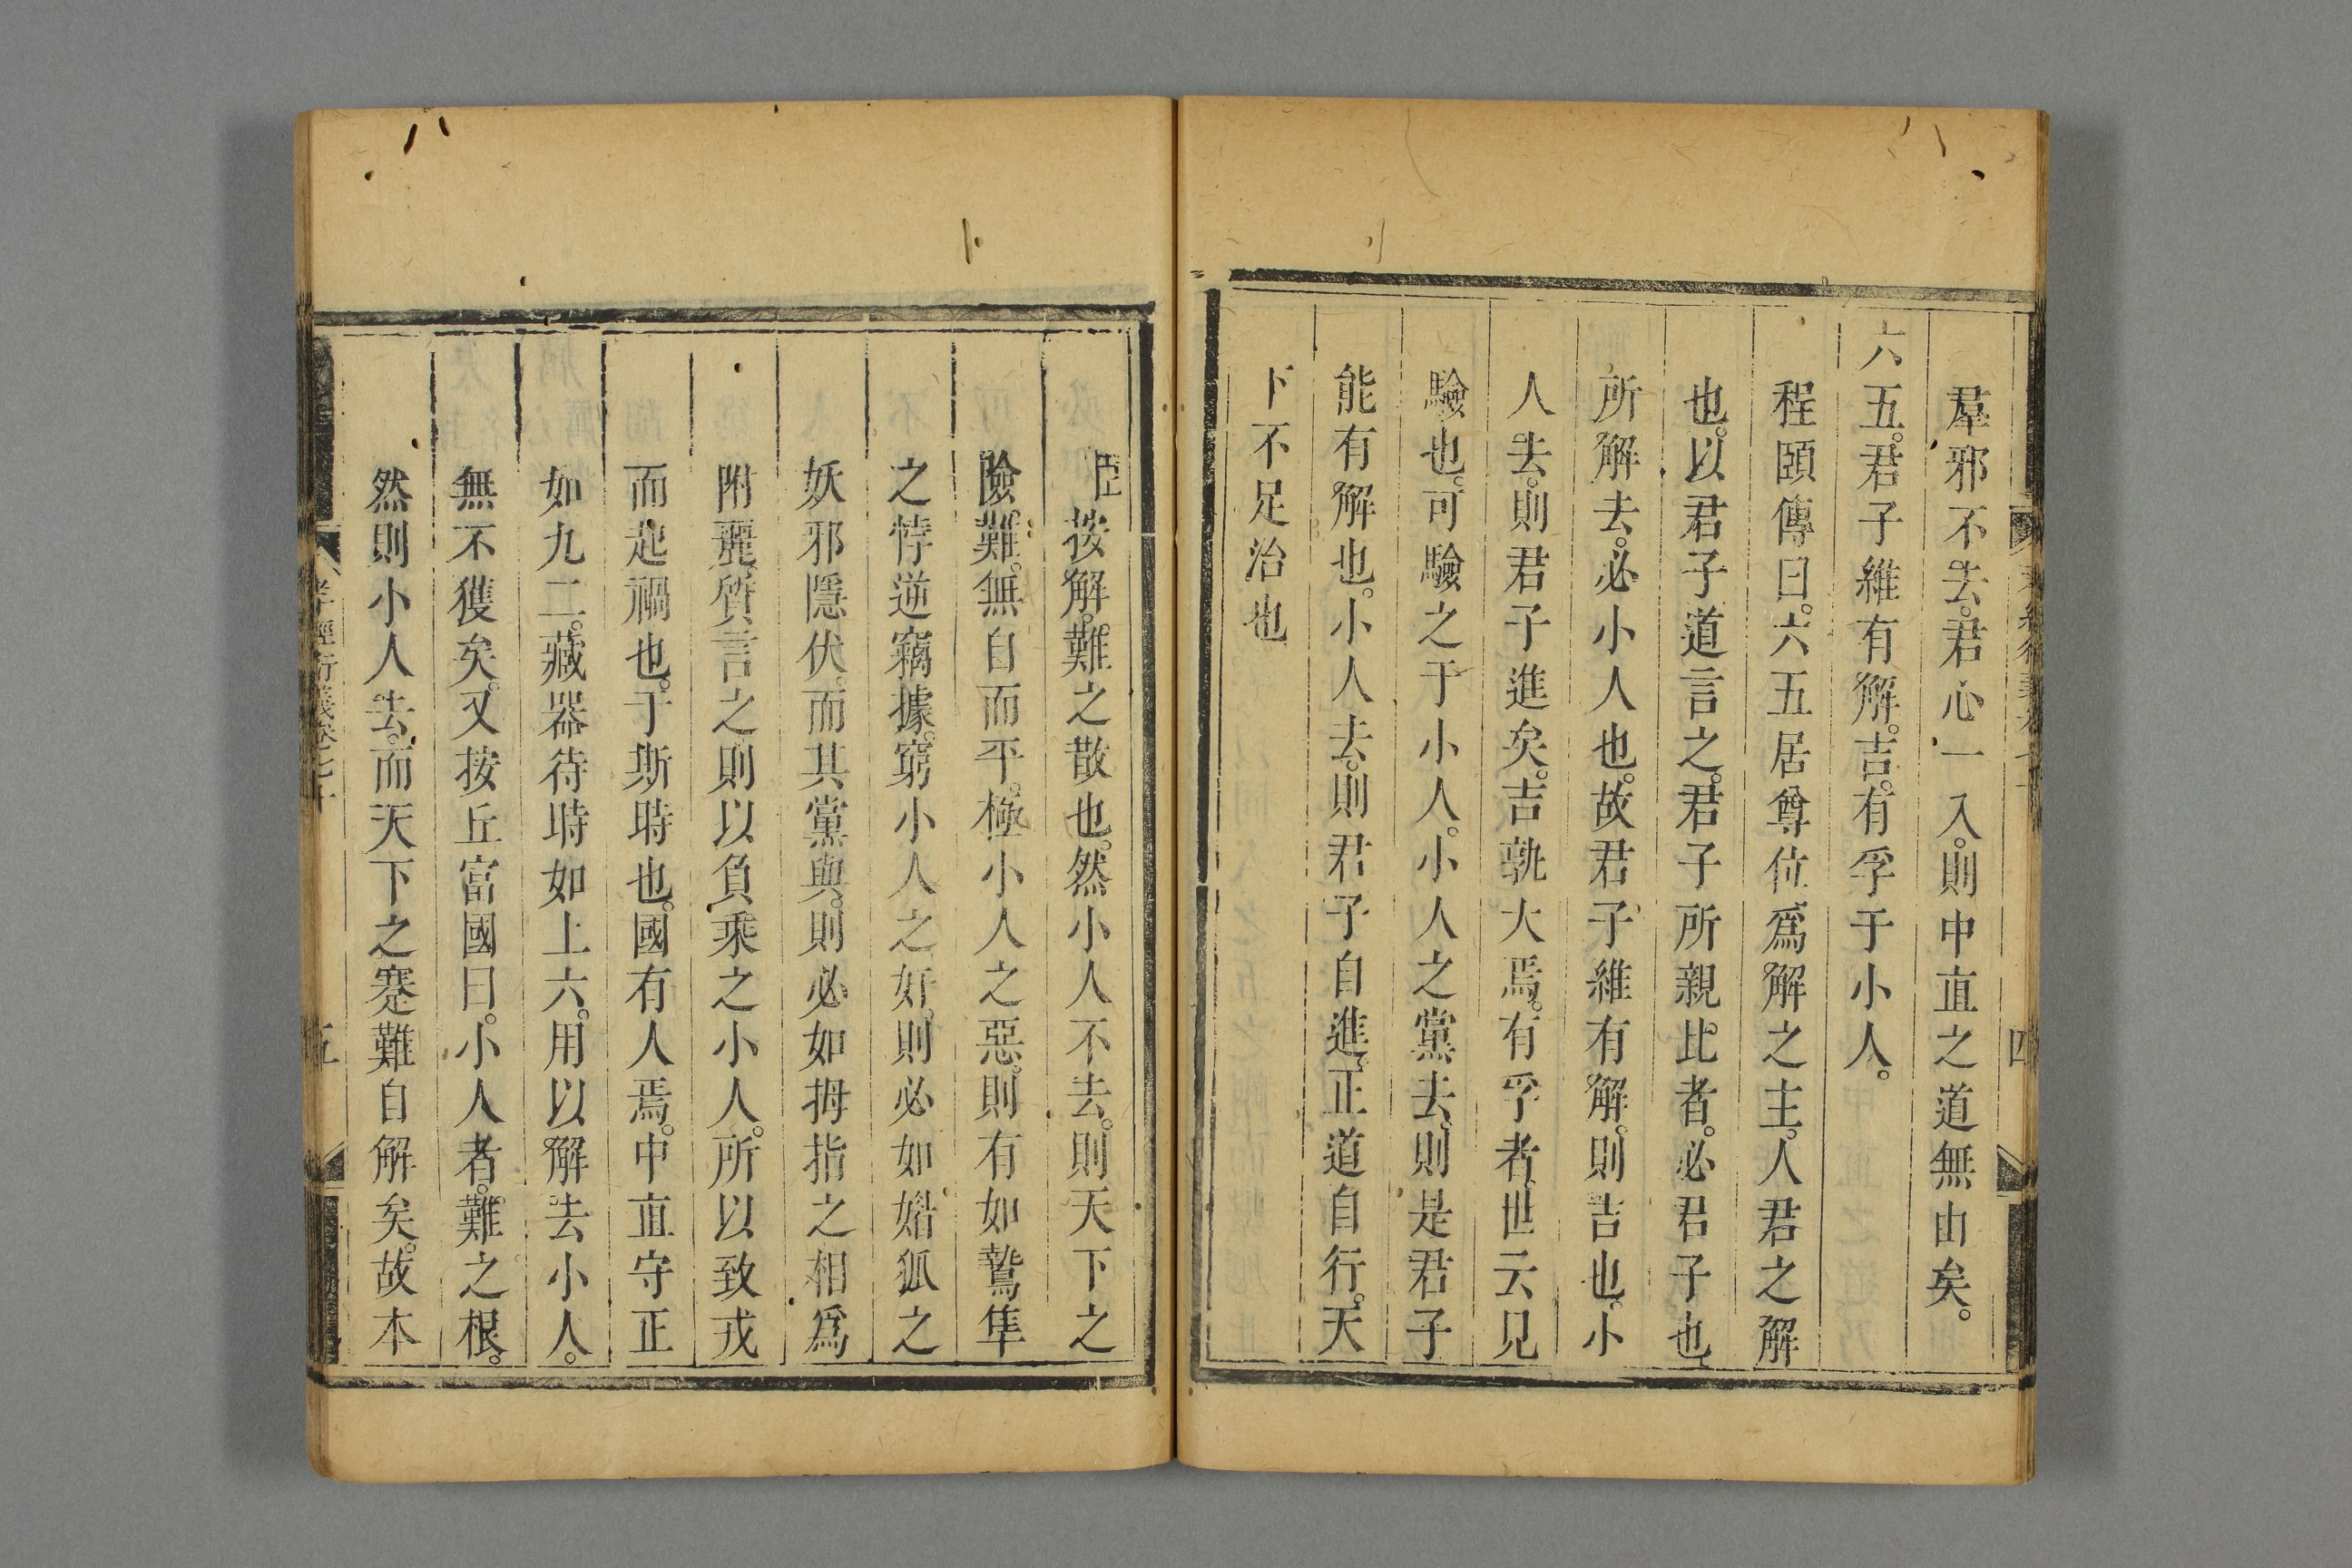 羣邪不去君心一入則中直之道無由矣
六五君子維有解吉有孚于小人
程頤傳曰六五居尊位爲解之主人君之解
也以君子道言之君子所親比者必君子也
所解去必小人也故君子維有解則吉也小
人去則君子進矣吉孰大焉有孚者世云見
驗也可驗之于小人小人之黨去則是君子
能有解也小人去則君子自進正道自行天
下不足治也
四
臣按解難之散也然小人不去則天下之
險難無自而平極小人之惡則有如鷙隼
之悖逆竊據窮小人之奸則必如媚狐之
妖邪隱伏而其黨與則必如拇指之相爲
附麗質言之則以負乘之小人所以致戎
而起禍也于斯時也國有人焉中直守正
如九二藏器待時如上六用以解去小人
無不獲矣又按丘富國曰小人者難之根
然則小人去而天下之蹇難自解矣故本
孝經衍義卷七十
五